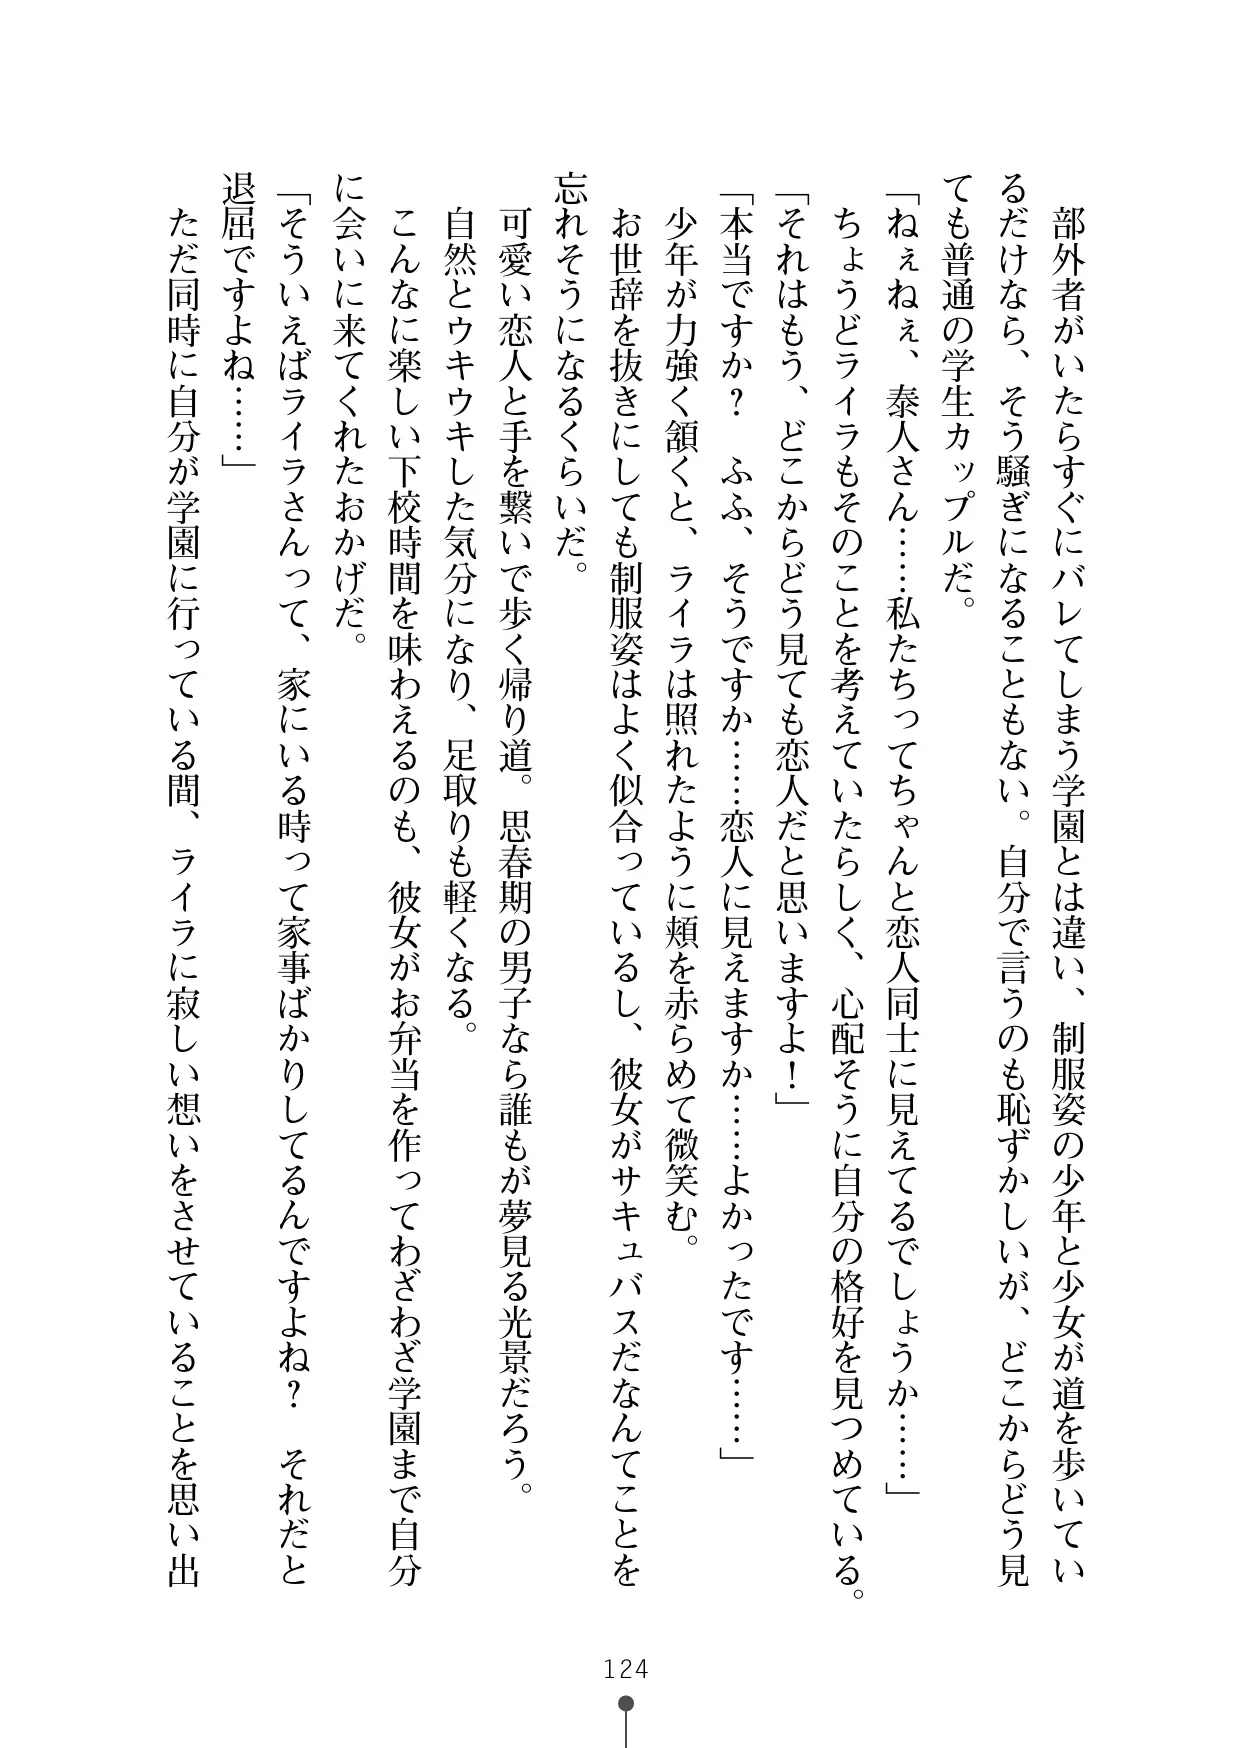 部外者がいたらすぐにバレてしまう学園とは違い、制服姿の少年と少女が道を歩いてい
るだけなら、そう騒ぎになることもない。自分で言うのも恥ずかしいが、どこからどう見
ても普通の学生カップルだ。
「ねぇねぇ、泰人さん……私たちってちゃんと恋人同士に見えてるでしょうか……」
　ちょうどライラもそのことを考えていたらしく、心配そうに自分の格好を見つめている。
「それはもう、どこからどう見ても恋人だと思いますよ！」
「本当ですか？　ふふ、そうですか……恋人に見えますか……よかったです……」
　少年が力強く頷くと、ライラは照れたように頬を赤らめて微笑む。
　お世辞を抜きにしても制服姿はよく似合っているし、彼女がサキュバスだなんてことを
忘れそうになるくらいだ。
　可愛い恋人と手を繋いで歩く帰り道。思春期の男子なら誰もが夢見る光景だろう。
　自然とウキウキした気分になり、足取りも軽くなる。
　こんなに楽しい下校時間を味わえるのも、彼女がお弁当を作ってわざわざ学園まで自分
に会いに来てくれたおかげだ。
「そういえばライラさんって、家にいる時って家事ばかりしてるんですよね？　それだと
退屈ですよね……」
　ただ同時に自分が学園に行っている間、ライラに寂しい想いをさせていることを思い出
124